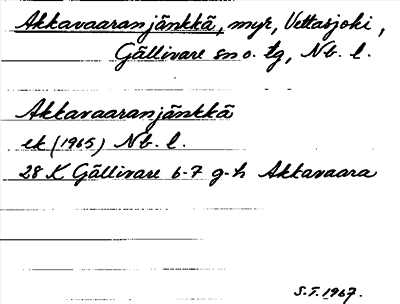 Akkavaaranjänkkä, myr, Vettasjoki,
Gällivare sn o. tg, Nb. l.
Akkavaaranjänkkä
ek (1965) Nb. l.
28 K Gällivare 6-7 g-h Akkavaara
S.F. 1967.